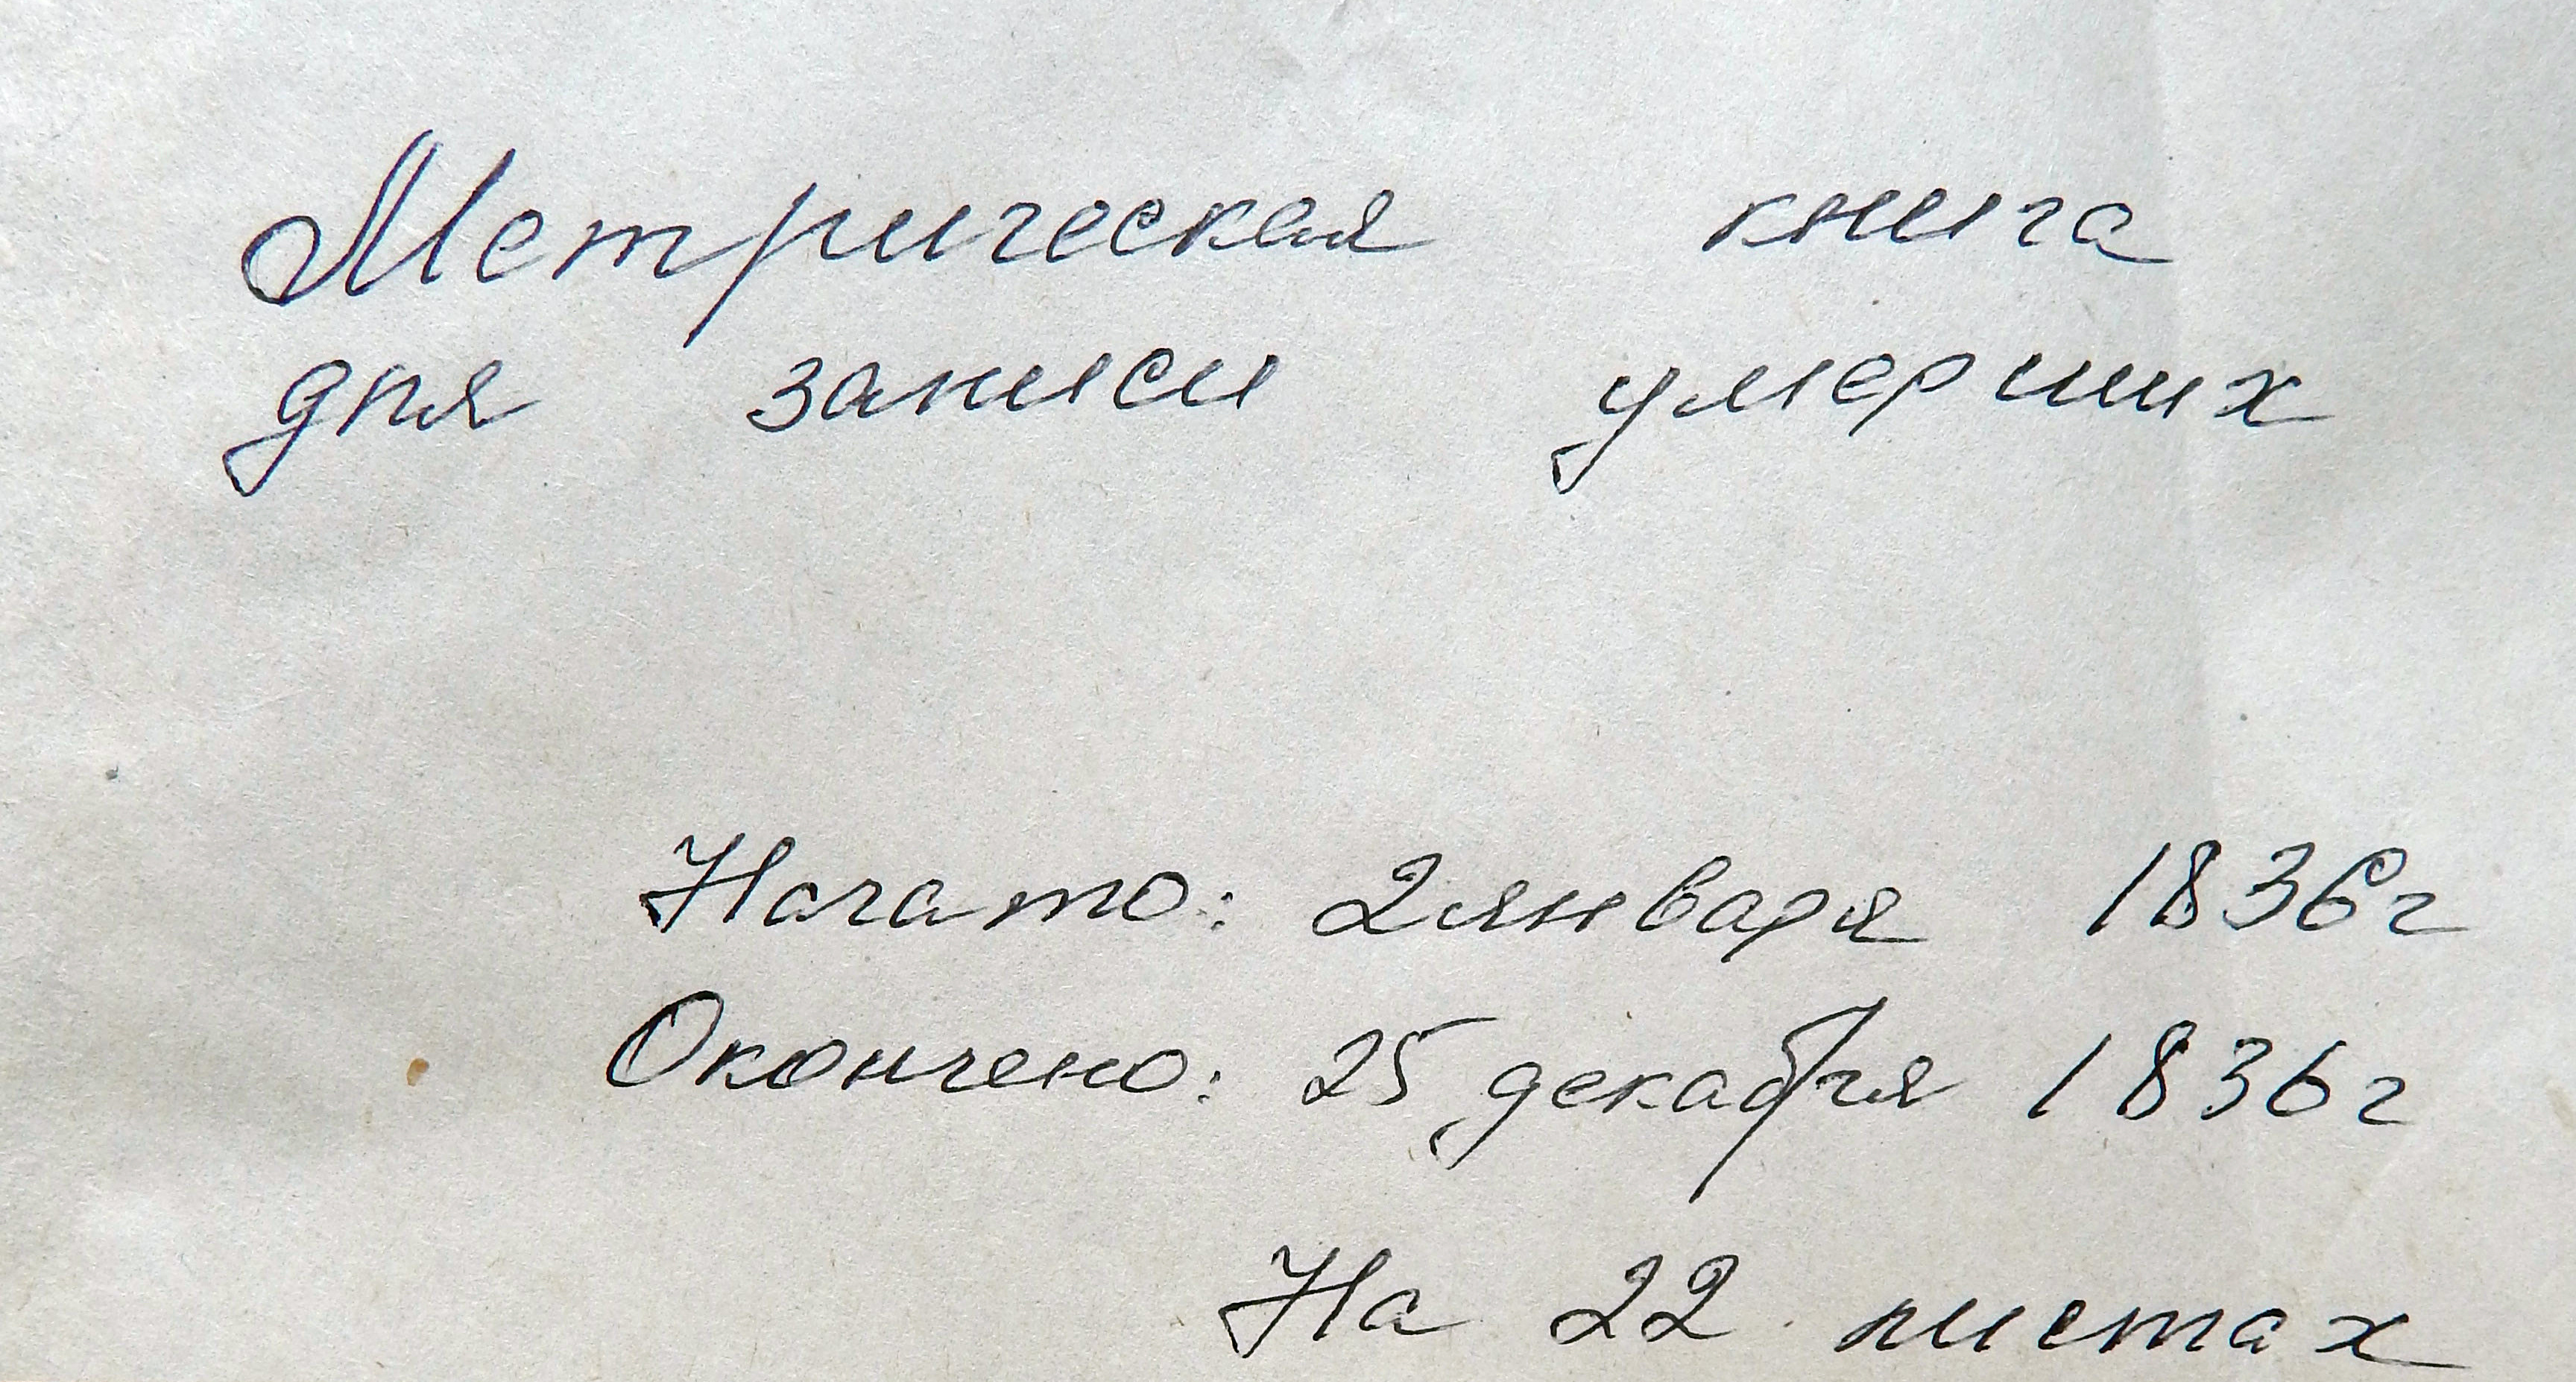 Метрическая книга
для записи умерших
Начато: 2 января 1836г
Окончено: 25 декабря 1836г
На 22 листах